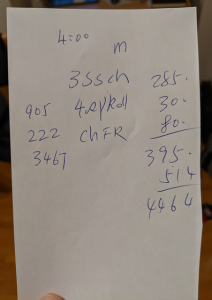 4:00
m
3 SSch 285.
905 4. 30.
222 ChFR 80.
3467 395.
514
4464